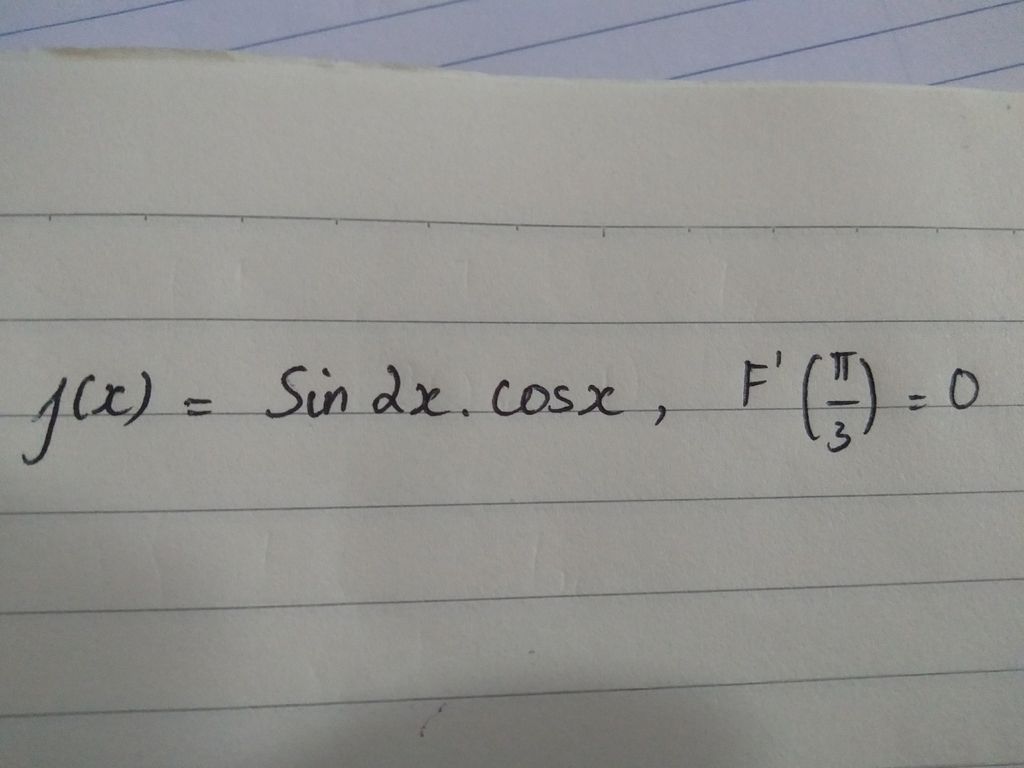 f(x) = Sin 2x . cosx , F'(π/3) = 0